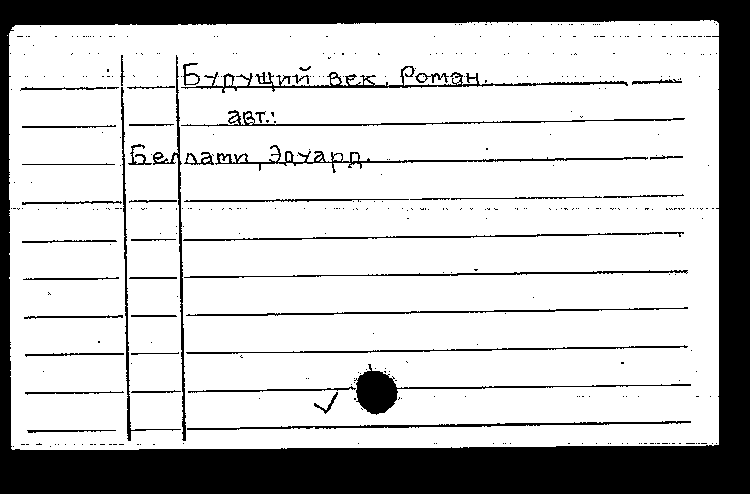 Будущий век. Роман.
авт.:
Беллами, Эдуард.